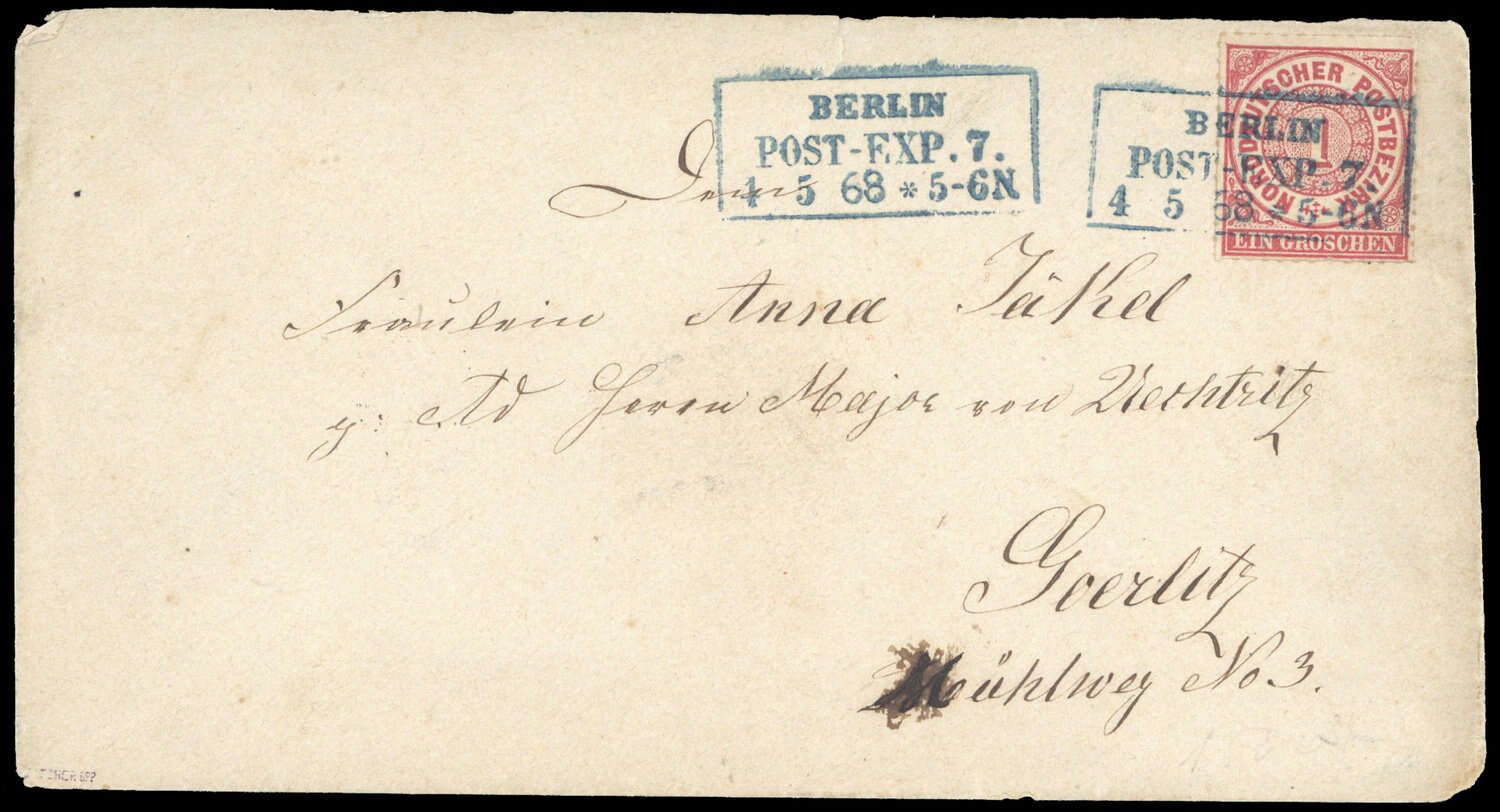 BERLIN
POST-EXP. 7.
4 5 68 * 5-6N
BERLIN
POST-EXP. 7
4 5 68 * 5-6N
NORDDEUTSCHER POSTBEZIRK
1
EIN GROSCHEN
Dem
Fräulein Anna Jäkel
p: Ad Herrn Major von Uechtritz
Goerlitz
Mühlweg No 3.